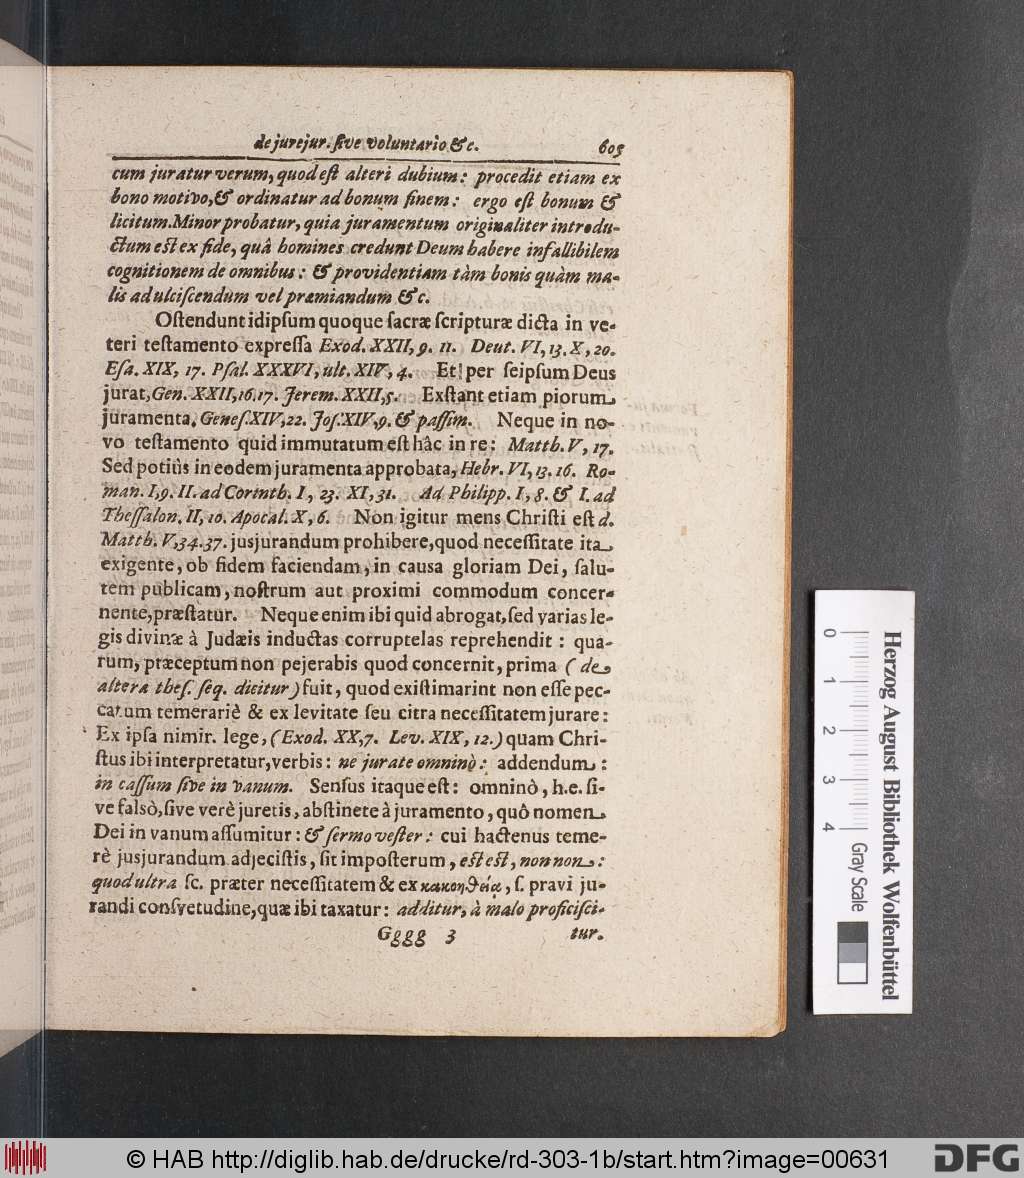 de jurejur. ſive voluntario &c. 605
cum juratur verum, quod eſt alteri dubium: procedit etiam ex
bono motivo, & ordinatur ad bonum finem: ergo eſt bonum &
licitum. Minor probatur, quia juramentum originaliter introdu-
ctum eſt ex fide, quâ homines credunt Deum habere infallibilem
cognitionem de omnibus: & providentiam tàm bonis quàm ma-
lis ad ulciſcendum vel præmiandum &c.
Oſtendunt idipſum quoque ſacræ ſcripturæ dicta in ve-
teri teſtamento expreſſa Exod. XXII, 9. 11. Deut. VI, 13. X, 20.
Eſa. XIX, 17. Pſal. XXXVI, ult. XIV, 4. Et per ſeipſum Deus
jurat, Gen. XXII, 16. 17. Jerem. XXII, 5. Exſtant etiam piorum
juramenta, Geneſ. XIV, 22. Joſ. XIV, 9. & paſſim. Neque in no-
vo teſtamento quid immutatum eſt hâc in re: Matth. V, 17.
Sed potiùs in eodem juramenta approbata, Hebr. VI, 13. 16. Ro-
man. I, 9. II. ad Corinth. I, 23. XI, 31. Ad Philipp. I, 8. & I. ad
Theſſalon. II, 10. Apocal. X, 6. Non igitur mens Chriſti eſt d.
Matth. V, 34. 37. jusjurandum prohibere, quod neceſſitate ita
exigente, ob fidem faciendam, in causa gloriam Dei, ſalu-
tem publicam, noſtrum aut proximi commodum concer-
nente, præſtatur. Neque enim ibi quid abrogat, ſed varias le-
gis divinæ à Judæis inductas corruptelas reprehendit: qua-
rum, præceptum non pejerabis quod concernit, prima (de
altera theſ. ſeq. dicitur) fuit, quod exiſtimarint non eſſe pec-
catum temerariè & ex levitate ſeu citra neceſſitatem jurare:
Ex ipſa nimir. lege, (Exod. XX, 7. Lev. XIX, 12.) quam Chri-
ſtus ibi interpretatur, verbis: ne jurate omninò: addendum:
in caſſum ſive in vanum. Senſus itaque eſt: omninò, h.e. ſi-
ve falsò, ſive verè juretis, abſtinete à juramento, quô nomen
Dei in vanum aſſumitur: & ſermo veſter: cui hactenus teme-
rè jusjurandum adjeciſtis, ſit impoſterum, eſt eſt, non non:
quod ultra ſc. præter neceſſitatem & ex κακοηθείᾳ, ſ. pravi ju-
randi conſvetudine, quæ ibi taxatur: additur, à malo proficiſci-
Gggg 3 tur.
0 1 2 3 4
Gray Scale
Herzog August Bibliothek Wolfenbüttel
© HAB http://diglib.hab.de/drucke/rd-303-1b/start.htm?image=00631
DFG